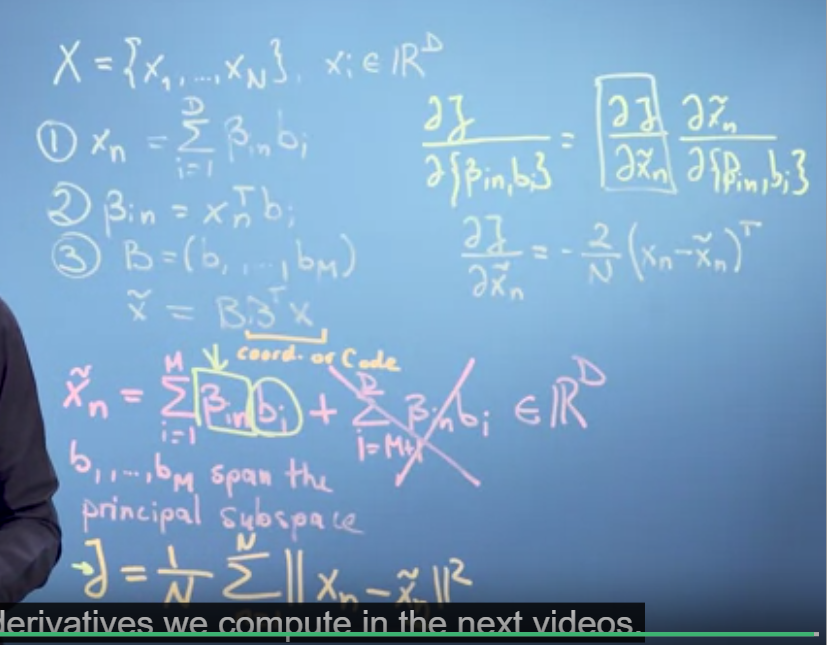 X = {x₁, ..., x_N}, xᵢ ∈ ℝᴰ
① xₙ = Σᵢ₌₁ᴰ βᵢₙ bᵢ
② βᵢₙ = xₙᵀ bᵢ
③ B = (b₁, ..., b_M)
x̃ = BBᵀx
coord. or Code
x̃ₙ = Σᵢ₌₁ᴹ βᵢₙ bᵢ + Σᵢ₌M₊₁ᴰ βᵢₙ bᵢ ∈ ℝᴰ
b₁, ..., b_M span the
principal subspace
→ J = 1/N Σᴺ ||xₙ - x̃ₙ||²
∂J/∂{βᵢₙ, bᵢ} = ∂J/∂x̃ₙ ∂x̃ₙ/∂{βᵢₙ, bᵢ}
∂J/∂x̃ₙ = - 2/N (xₙ - x̃ₙ)ᵀ
derivatives we compute in the next videos.